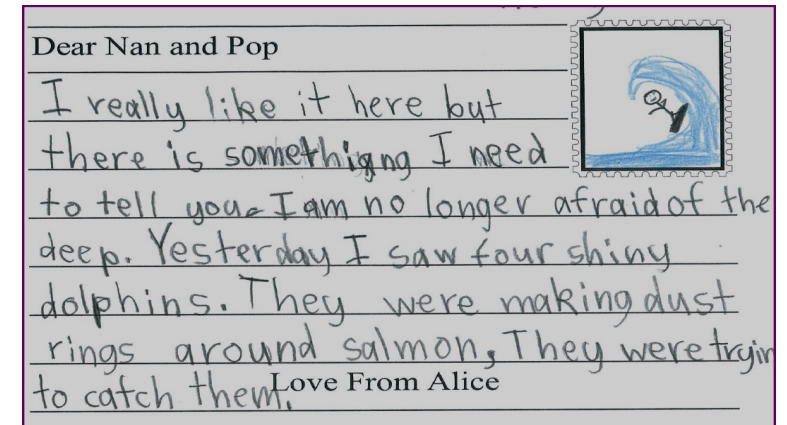 Dear Nan and Pop
I really like it here but
there is somethigng I need
to tell you. I am no longer afraid of the
deep. Yesterday I saw four shiny
dolphins. They were making dust
rings around salmon, They were tryin
to catch them.
Love From Alice